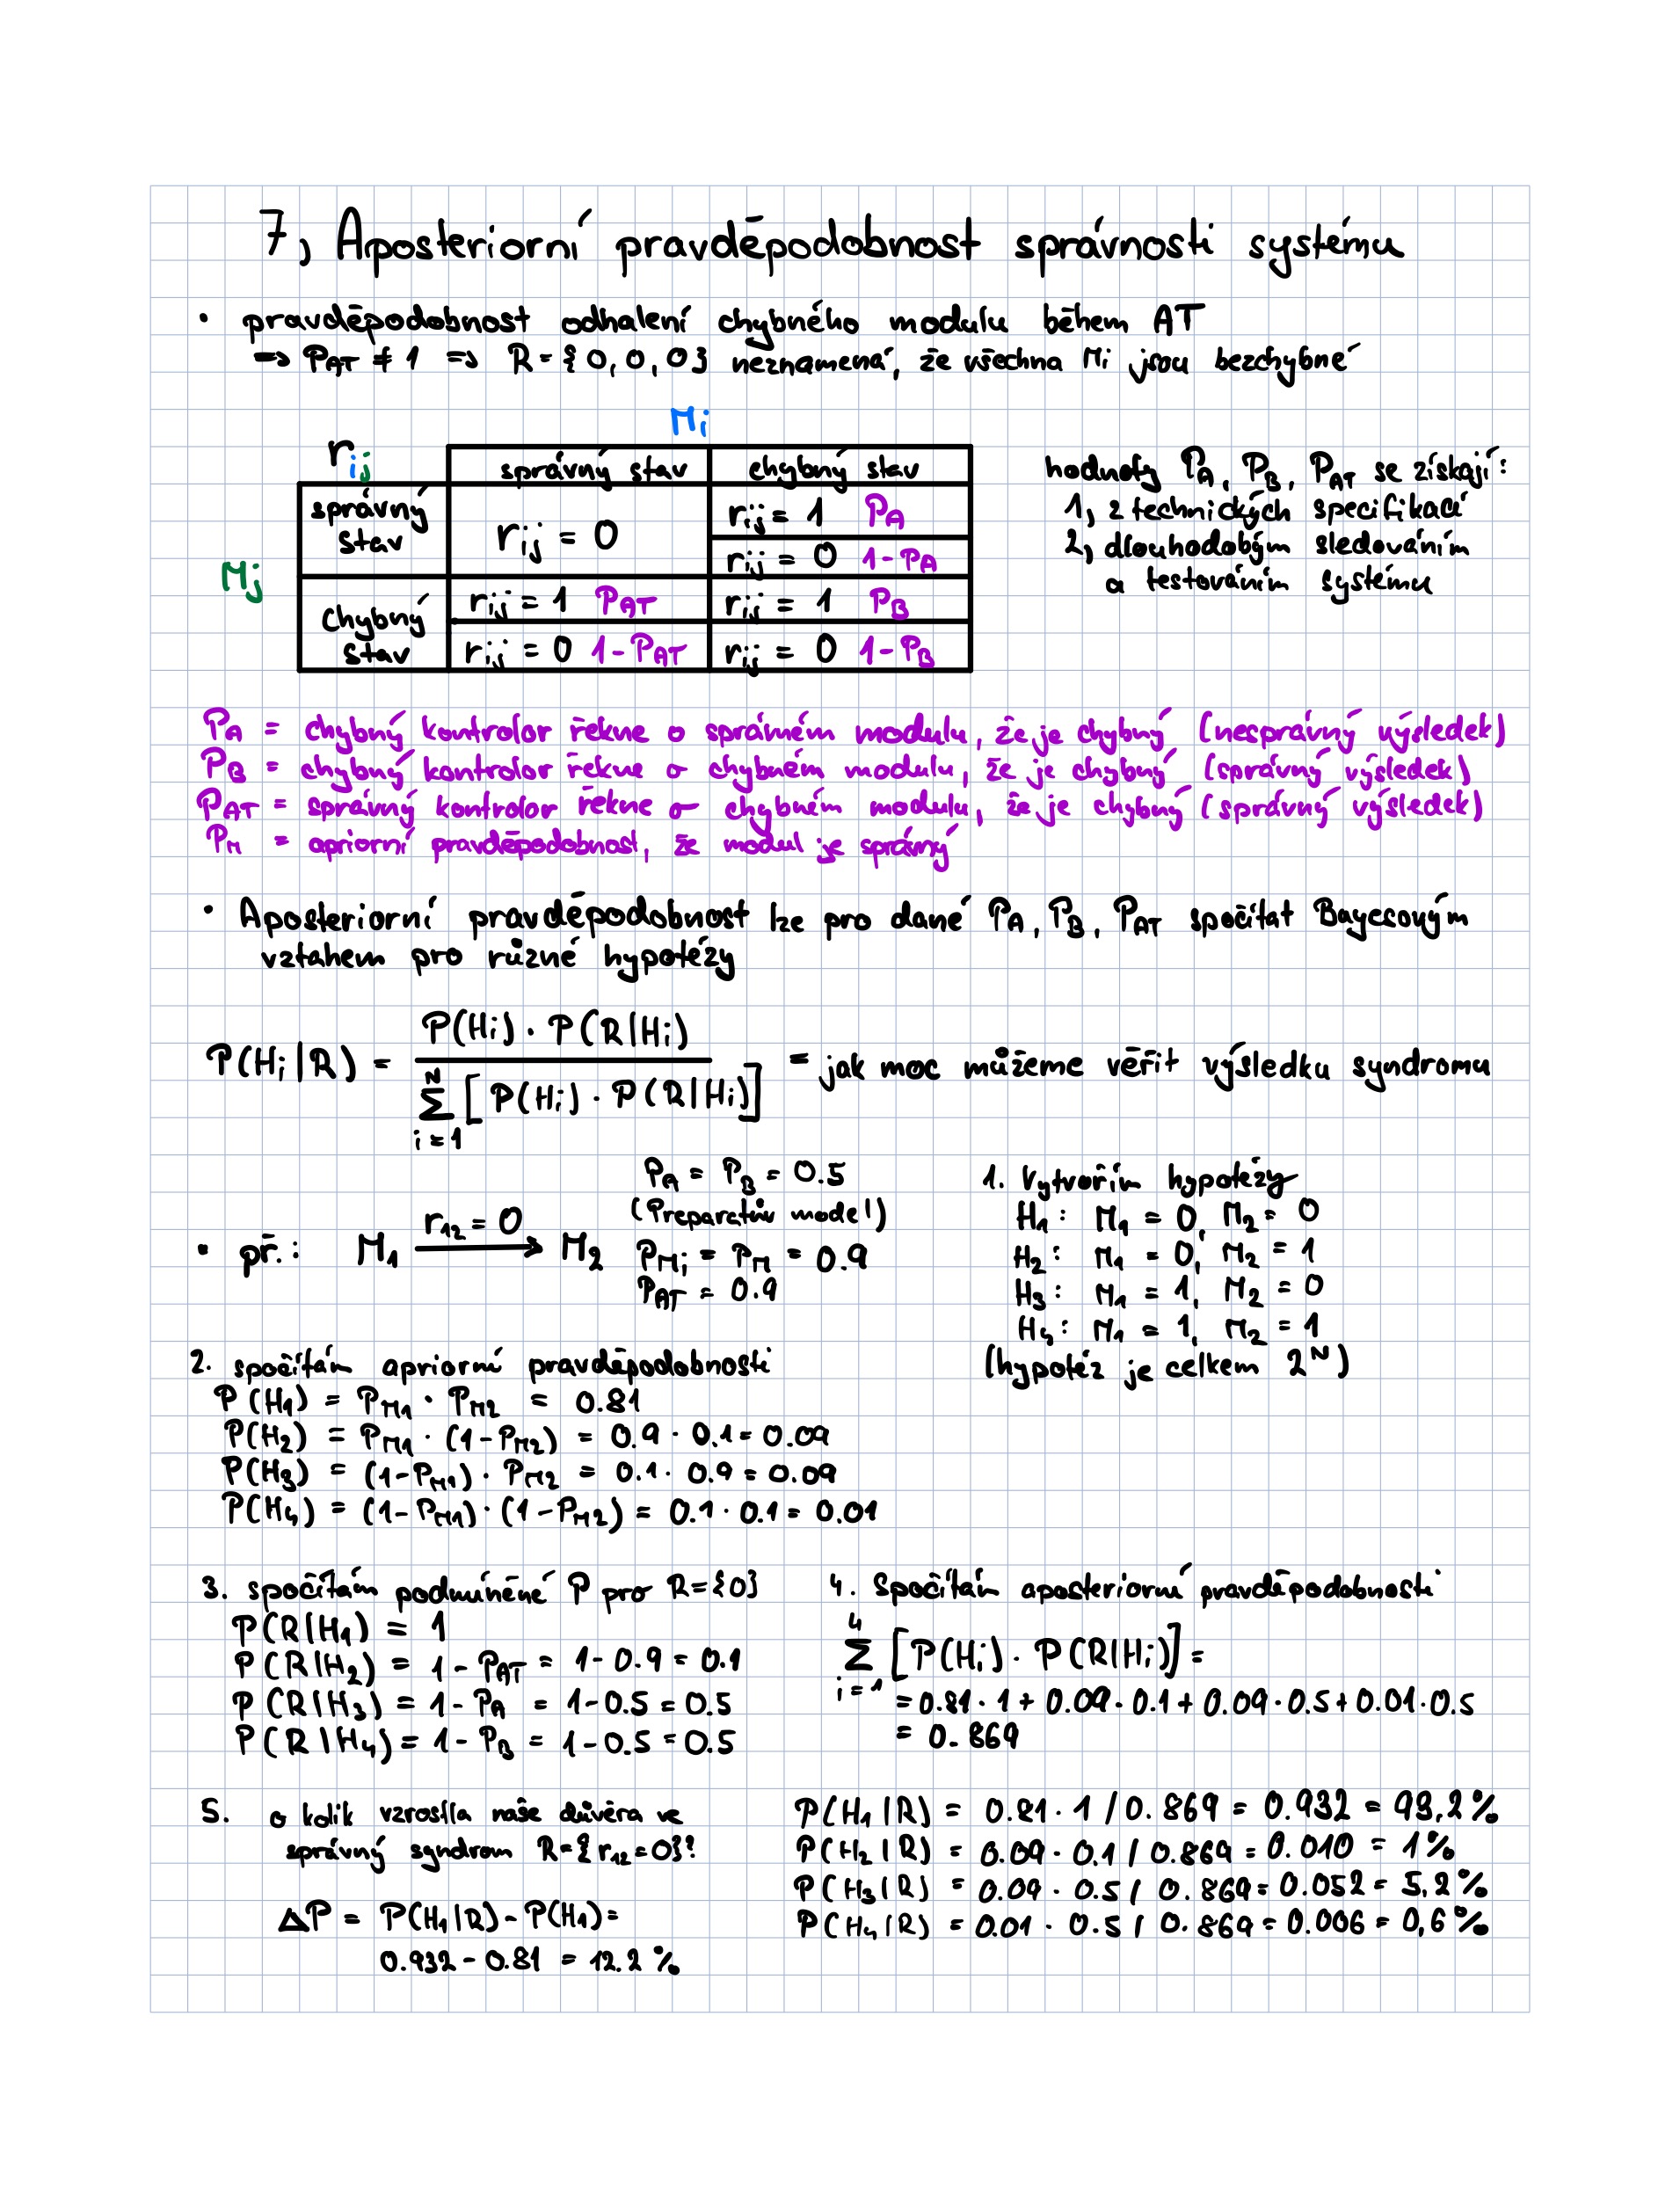 7, Aposteriorní pravděpodobnost správnosti systému
• pravděpodobnost odhalení chybného modulu během AT
=> PAT ≠ 1 => R = {0, 0, 0} neznamená, že všechna Mi jsou bezchybné
Mi
rij
správný stav
chybný stav
Mj
správný stav
rij = 0
rij = 1 PA
rij = 0 1-PA
chybný stav
rij = 1 PAT
rij = 1 PB
rij = 0 1-PAT
rij = 0 1-PB
hodnoty PA, PB, PAT se získají:
1, z technických specifikací
2, dlouhodobým sledováním
a testováním systému
PA = chybný kontrolor řekne o správném modulu, že je chybný (nesprávný výsledek)
PB = chybný kontrolor řekne o chybném modulu, že je chybný (správný výsledek)
PAT = správný kontrolor řekne o chybném modulu, že je chybný (správný výsledek)
PM = apriorní pravděpodobnost, že modul je správný
• Aposteriorní pravděpodobnost lze pro dané PA, PB, PAT spočítat Bayesovým
vztahem pro různé hypotézy
P(Hi|R) = P(Hi) · P(R|Hi) / N Σ i=1 [P(Hi) · P(R|Hi)] = jak moc můžeme věřit výsledku syndromu
• př.: M1 r12 = 0 → M2
PA = PB = 0.5
(Preparatův model)
PMi = PM = 0.9
PAT = 0.9
1. Vytvořím hypotézy
H1: M1 = 0, M2 = 0
H2: M1 = 0, M2 = 1
H3: M1 = 1, M2 = 0
H4: M1 = 1, M2 = 1
(hypotéz je celkem 2^N)
2. spočítám apriorní pravděpodobnosti
P(H1) = PM1 · PM2 = 0.81
P(H2) = PM1 · (1-PM2) = 0.9 · 0.1 = 0.09
P(H3) = (1-PM1) · PM2 = 0.1 · 0.9 = 0.09
P(H4) = (1-PM1) · (1-PM2) = 0.1 · 0.1 = 0.01
3. spočítám podmíněné P pro R={0}
P(R|H1) = 1
P(R|H2) = 1 - PAT = 1 - 0.9 = 0.1
P(R|H3) = 1 - PA = 1 - 0.5 = 0.5
P(R|H4) = 1 - PB = 1 - 0.5 = 0.5
4. Spočítám aposteriorní pravděpodobnosti
4 Σ i=1 [P(Hi) · P(R|Hi)] =
= 0.81 · 1 + 0.09 · 0.1 + 0.09 · 0.5 + 0.01 · 0.5
= 0.869
P(H1|R) = 0.81 · 1 / 0.869 = 0.932 = 93,2%
P(H2|R) = 0.09 · 0.1 / 0.869 = 0.010 = 1%
P(H3|R) = 0.09 · 0.5 / 0.869 = 0.052 = 5,2%
P(H4|R) = 0.01 · 0.5 / 0.869 = 0.006 = 0,6%
5. o kolik vzrostla naše důvěra ve
správný syndrom R={r12=0}?
ΔP = P(H1|R) - P(H1) =
0.932 - 0.81 = 12.2%